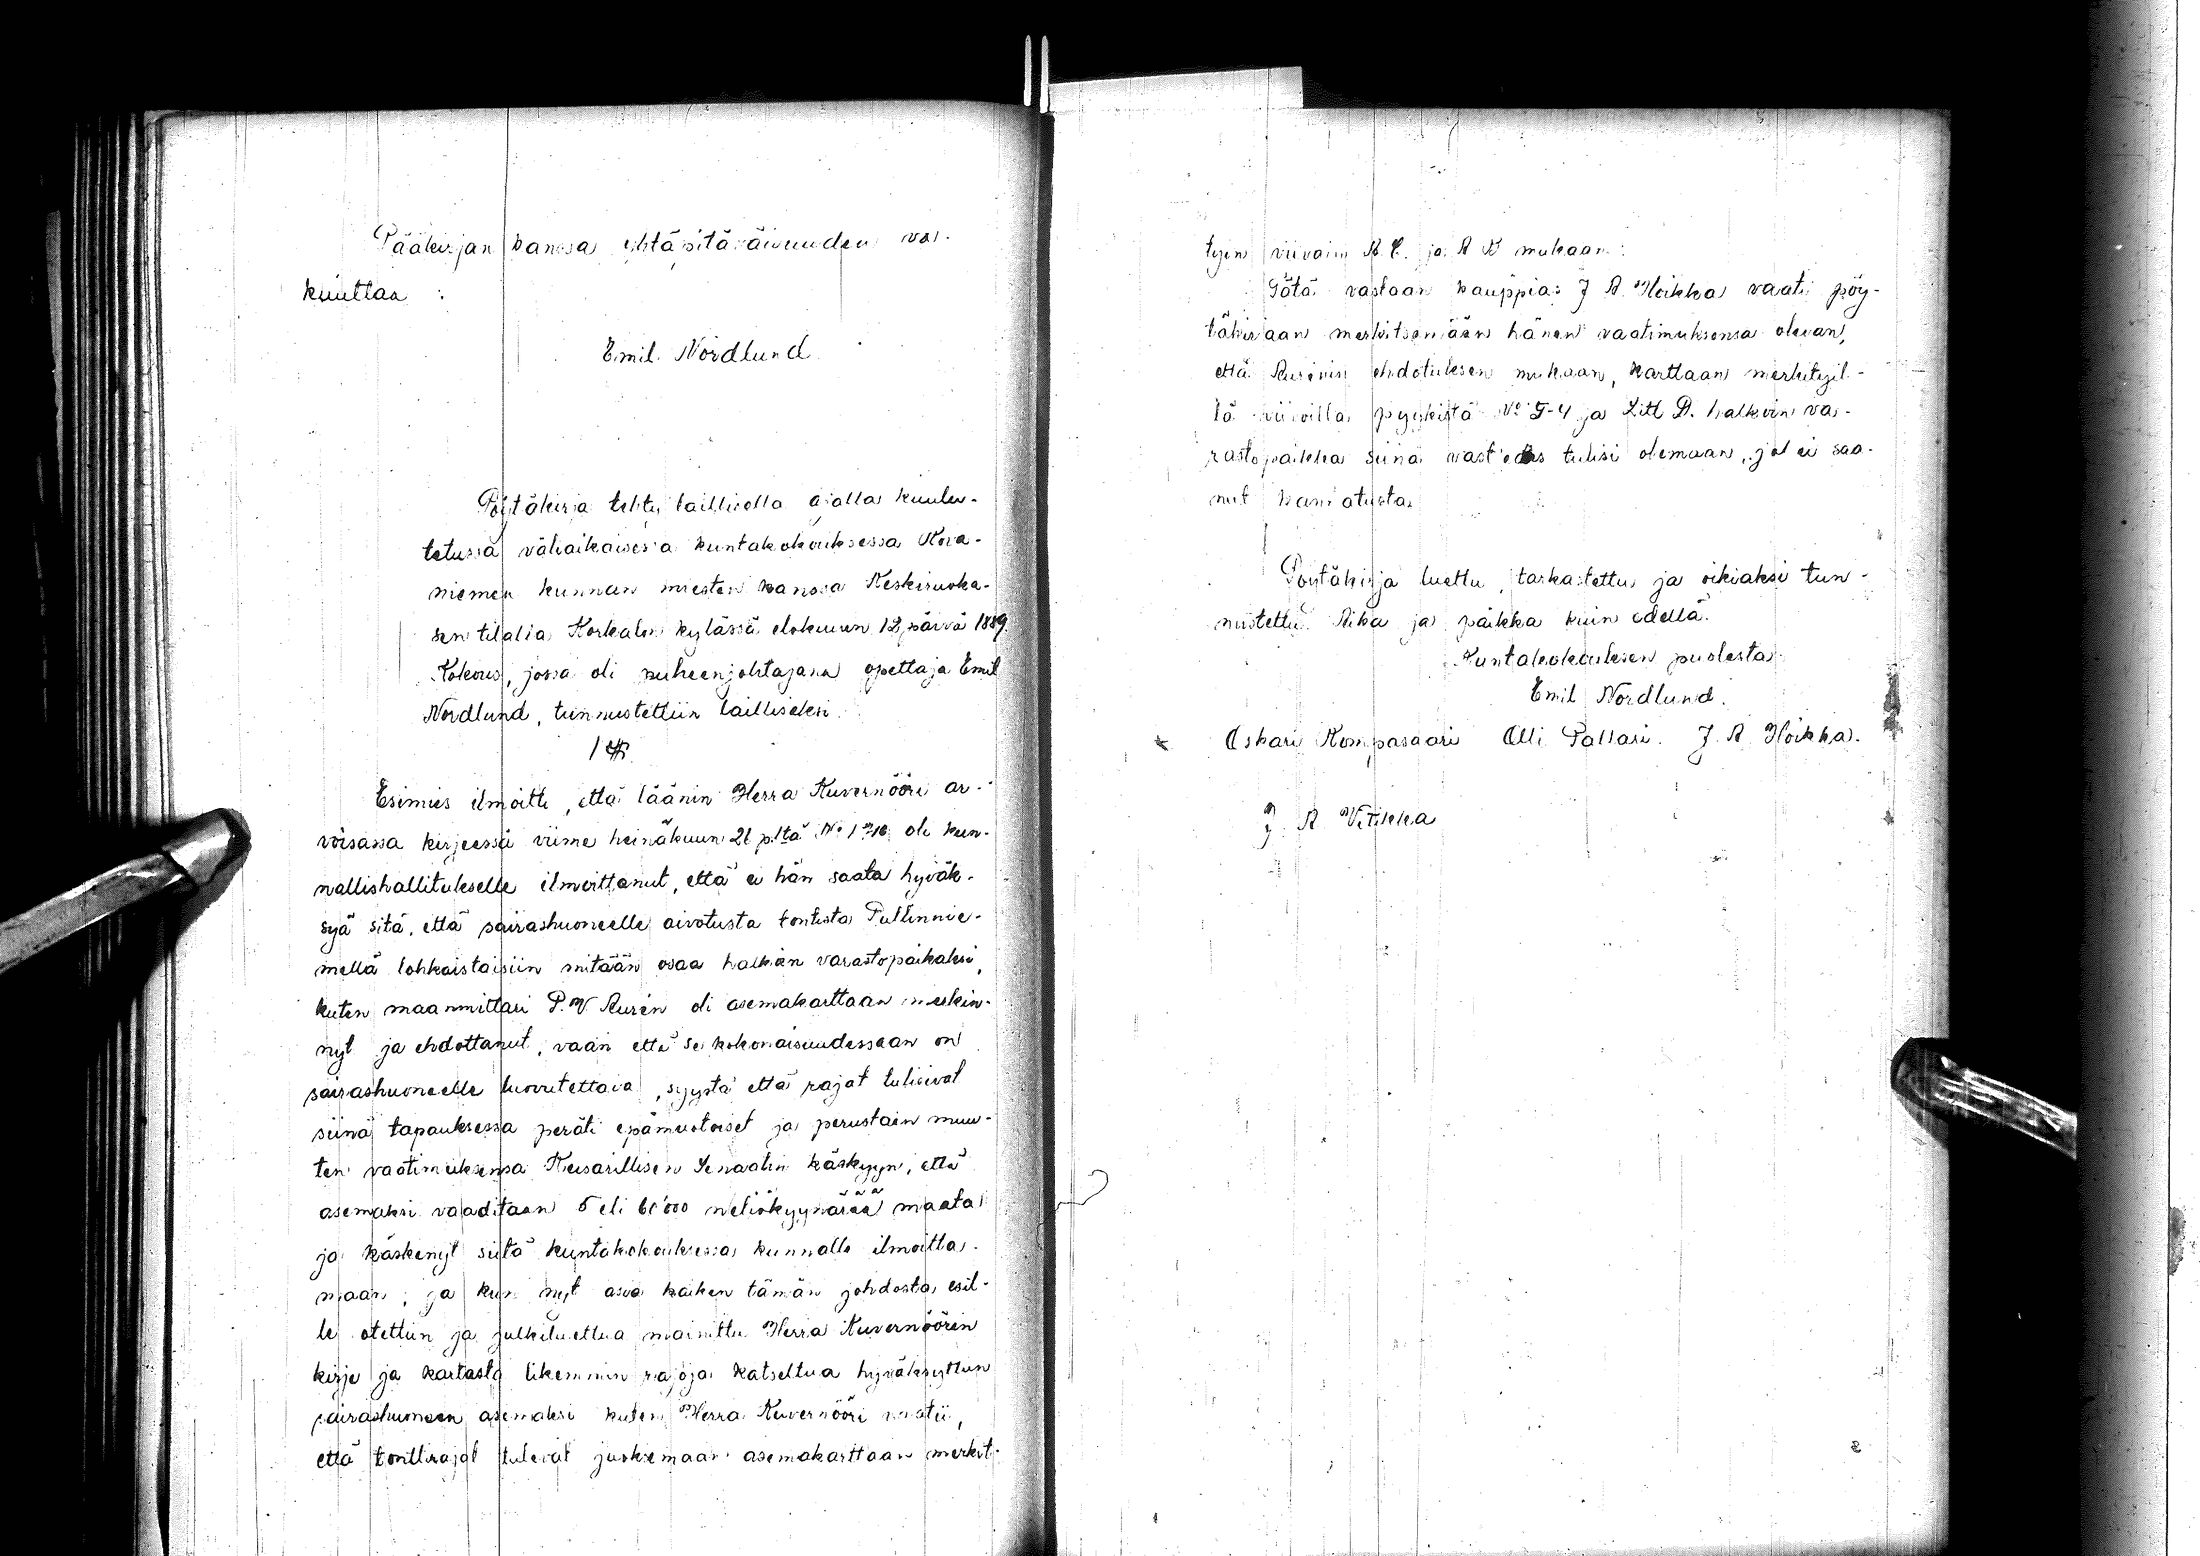 Pääkirjan kanssa yhtäpitäväisuuden va-
kuuttaa :
Emil Nordlund
Pöytäkirja tehty laillisella ajalla kuulu-
tetussa väliaikaisessa kuntakokouksessa Rova-
niemen kunnan miesten kanssa Keskiruoka-
sen tilalla Korkalon kylässä elokuun 12 päivä 1889.
Kokous, jossa oli puheenjohtajana opettaja Emil
Nordlund, tunnustettiin lailliseksi.
1 §.
Esimies ilmoitti, että läänin Herra Kuvernööri ar-
voisassa kirjeessä viime heinäkuun 26 p:ltä No oli kun-
nallishallitukselle ilmoittanut, että ei hän saata hyväk-
syä sitä, että sairashuoneelle aivotusta tontista Pullinnie-
mellä lohkaistaisiin mitään osaa halkoin varastopaikaksi,
kuten maanmittari P. W. Aurén oli asemakarttaan merkin-
nyt ja ehdottanut, vaan että se kokonaisuudessaan on
sairashuoneelle luovutettava, syystä että rajat tulisivat
siinä tapauksessa peräti epämuotoiset ja perustaen muu-
ten vaatimuksensa Keisarillisen Senaatin käskyyn, että
asemaksi vaaditaan 5 eli 60'000 neliökyynärää maata
ja käskenyt siitä kuntakokouksessa kunnalle ilmoitta-
maan; ja kun nyt asia kaiken tämän johdosta esil-
le otettiin ja julkiluettua mainittu Herra Kuvernöörin
kirje ja kartasta likemmin rajoja katseltua hyväksyttiin
sairashuoneen asemaksi kuten Herra Kuvernööri vaatii,
että tonttirajat tulevat juoksemaan asemakarttaan merkit-
tyjen viivain A C. ja A B mukaan.
Tätä vastaan kauppias J A Hoikka vaati pöy-
täkirjaan merkitsemään hänen vaatimuksensa olevan,
että Aurénin ehdotuksen mukaan, karttaan merkityil-
lä viivoilla pyykistä No 5-4 ja Litt D. halkoin va-
rastopaikka siinä vastedes tulisi olemaan, jot ei saa-
nut kannatusta.
Pöytäkirja luettu, tarkastettu ja oikiaksi tun-
nustettu. Aika ja paikka kuin edellä.
Kuntakokouksen puolesta:
Emil Nordlund.
Oskari Kompasaari Olli Pallari. J. A Hoikka.
J. A Vitikka